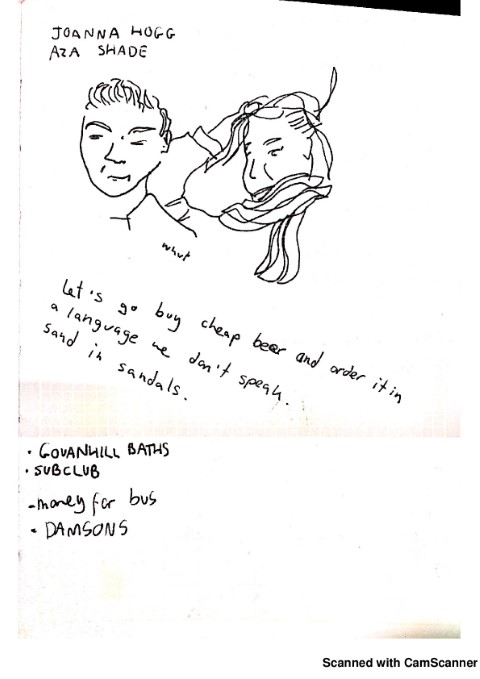 JOANNA HOGG
AZA SHADE
what
Let's go buy cheap beer and order it in
a language we don't speak.
sand in sandals.
• GOVANHILL BATHS
• SUBCLUB
- money for bus
• DAMSONS
Scanned with CamScanner